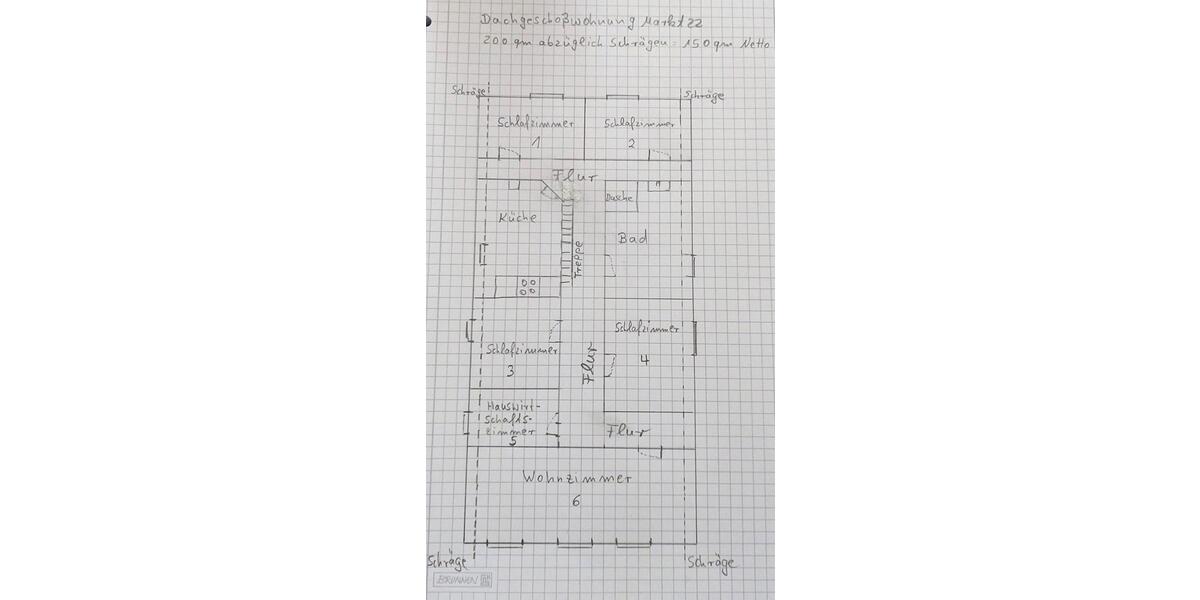 Dachgeschoßwohnung Markt 22
200 qm abzüglich Schrägen = 150 qm Netto
Schräge
Schräge
Schlafzimmer
1
Schlafzimmer
2
Flur
Dusche
Küche
Bad
Treppe
Schlafzimmer
4
Schlafzimmer
3
Flur
Hauswirt-
schafts-
zimmer
5
Flur
Wohnzimmer
6
Schräge
Schräge
BRUNNEN